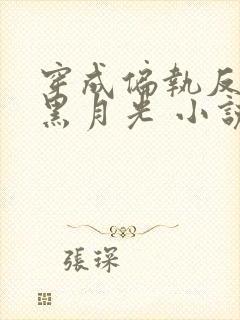 穿成偏執反
黑月光 小說
張琛